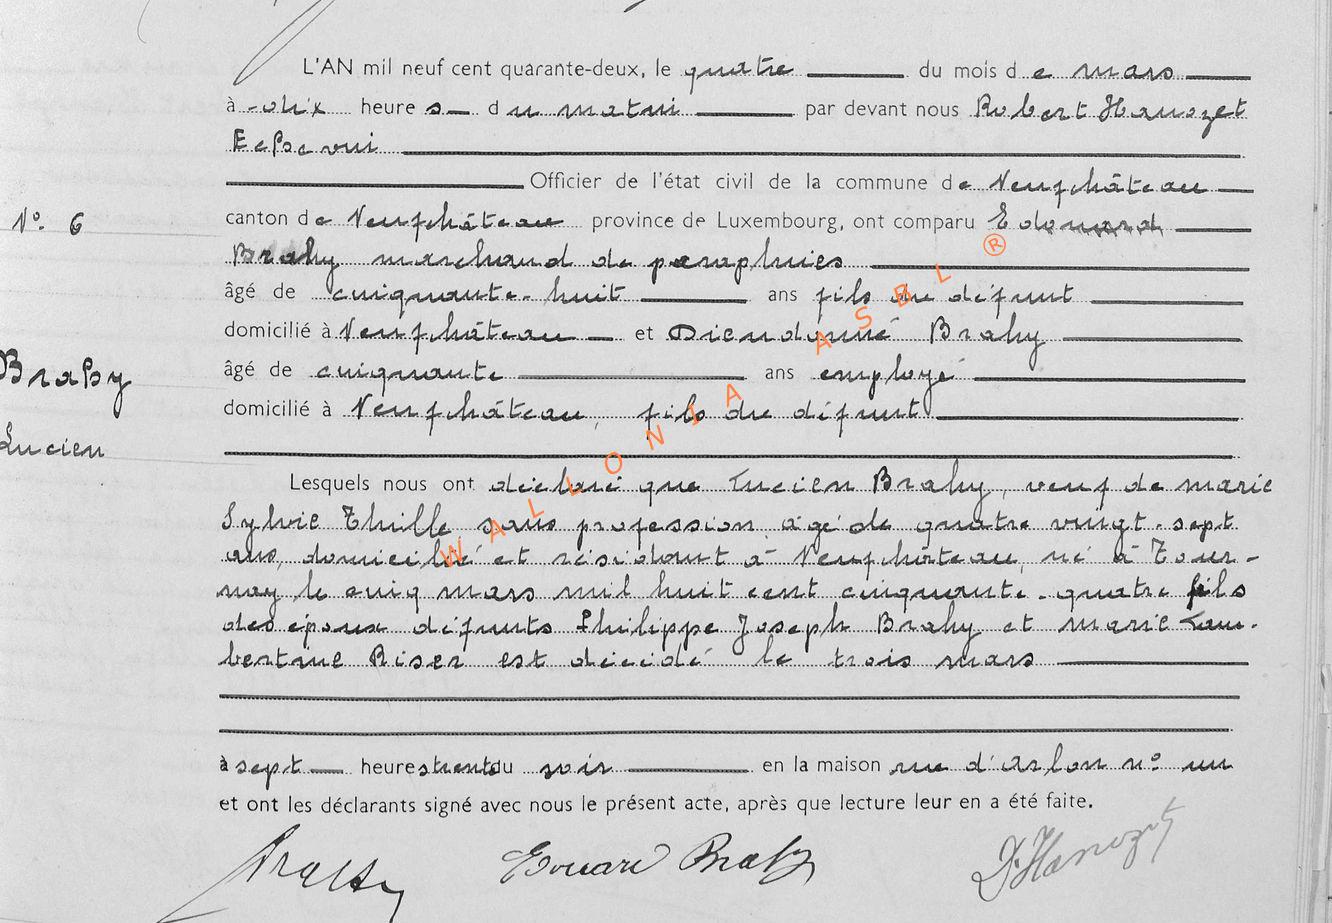 L'AN mil neuf cent quarante-deux, le quatre du mois de mars
à dix heures du matin par devant nous Robert Hanozet
Echevin
Officier de l'état civil de la commune de Neufchâteau
N° 6
canton de Neufchâteau province de Luxembourg, ont comparu Edouard
Brahy marchand de parapluies
âgé de cinquante-huit ans fils du défunt
domicilié à Neufchâteau et Dieudonné Brahy
Brahy
âgé de cinquante ans employé
domicilié à Neufchâteau, fils du défunt
Lucien
Lesquels nous ont déclaré que Lucien Brahy, veuf de marie
Sylvie Thille sans profession âgé de quatre vingt-sept
ans, domicilié et résidant à Neufchâteau, né à Tour-
nay le cinq mars mil huit cent cinquante-quatre fils
des époux défunts Philippe Joseph Brahy et marie Lam-
bertine Riser est décédé le trois mars
à sept heures trente du soir en la maison rue d'Arlon n° un
et ont les déclarants signé avec nous le présent acte, après que lecture leur en a été faite.
Brahy Edouard Brahy D. Hanozet
WALLONIA ASBL ®